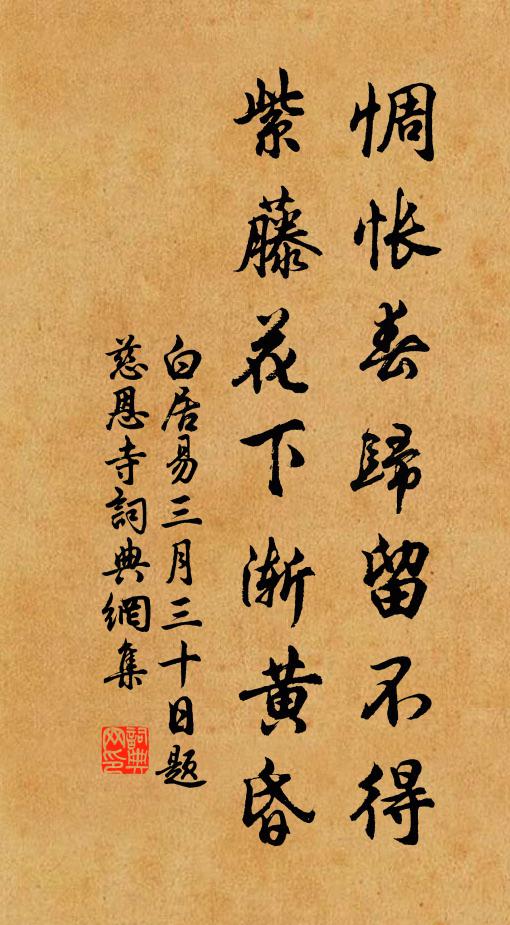 惆悵春歸留不得
紫藤花下漸黃昏
白居易三月三十日題
慈恩寺詞典網集
詞典
网印